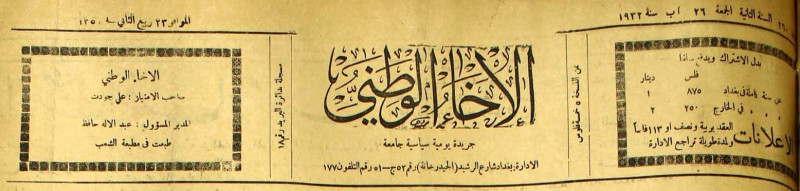 السنة الثانية الجمعة ٢٦ آب سنة ١٩٣٢
الموافق ٢٣ ربيع الثاني سنة ١٣٥
بدل الاشتراك ويدفع سلفاً
فلس دينار
عن سنة كاملة في بغداد ٨٧٥ ١
» » في الخارج ٢٥٠ ٢
الاعلانات
العقد برية ونصف او ١١٣ فلساً
لمدة طويلة تراجع الادارة
ثمن النسخة ٥ خمسة فلوس
الاخاء الوطني
جريدة يومية سياسية جامعة
الادارة: بغداد شارع الرشيد (الحيدرخانة) رقم ٥٢ ج – ٥١ رقم التلفون ١٧٧
مسجلة بدائرة البريد رقم ١٨
الاخاء الوطني
صاحب الامتياز: علي جودت
المدير المسؤول: عبد الاله حافظ
طبعت في مطبعة الشعب